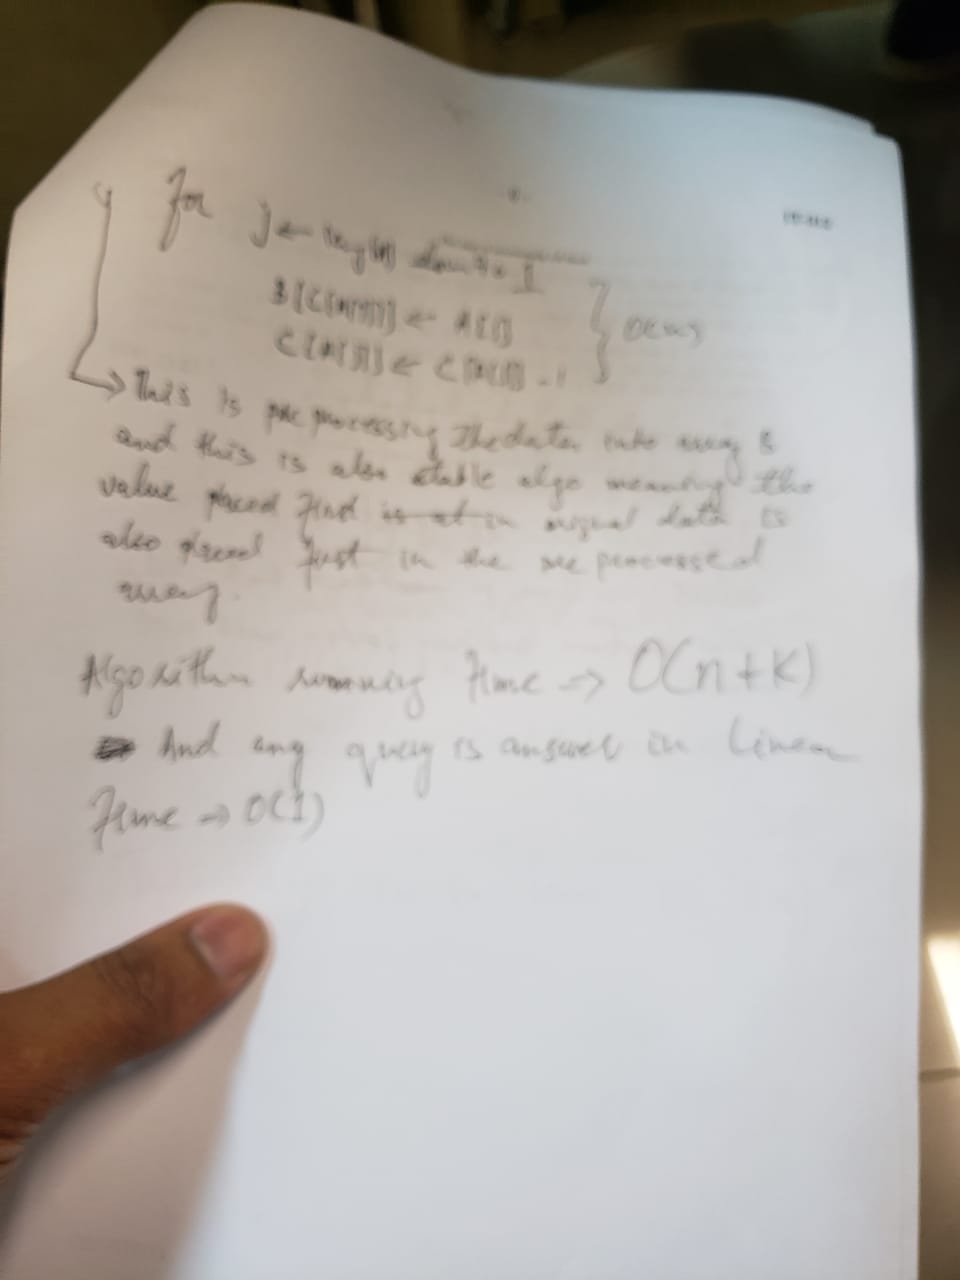 for j ← length(A) downto 1
B[C[A[j]]] ← A[j]
C[A[j]] ← C[A[j]] - 1
This is pre processing the data into array B
and this is also stable algo meaning the
value placed first in data is
also placed first in the processed
array.
Algorithm running time → O(n+k)
And any query is answer in linear
time → O(1)